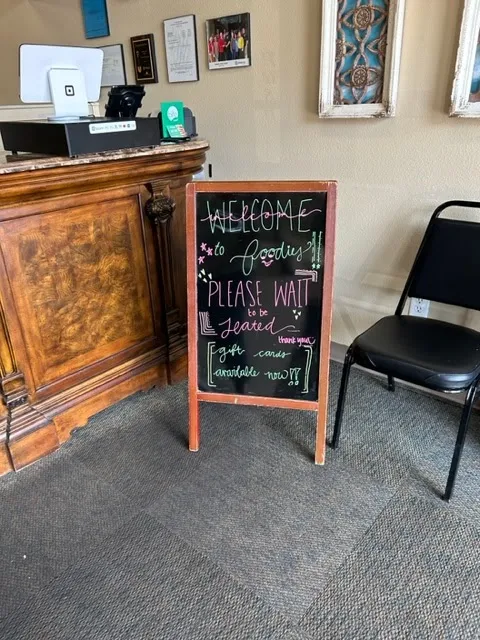 WELCOME
welcome
to foodies
PLEASE WAIT
to be
seated
thank you!
gift cards
available now!!